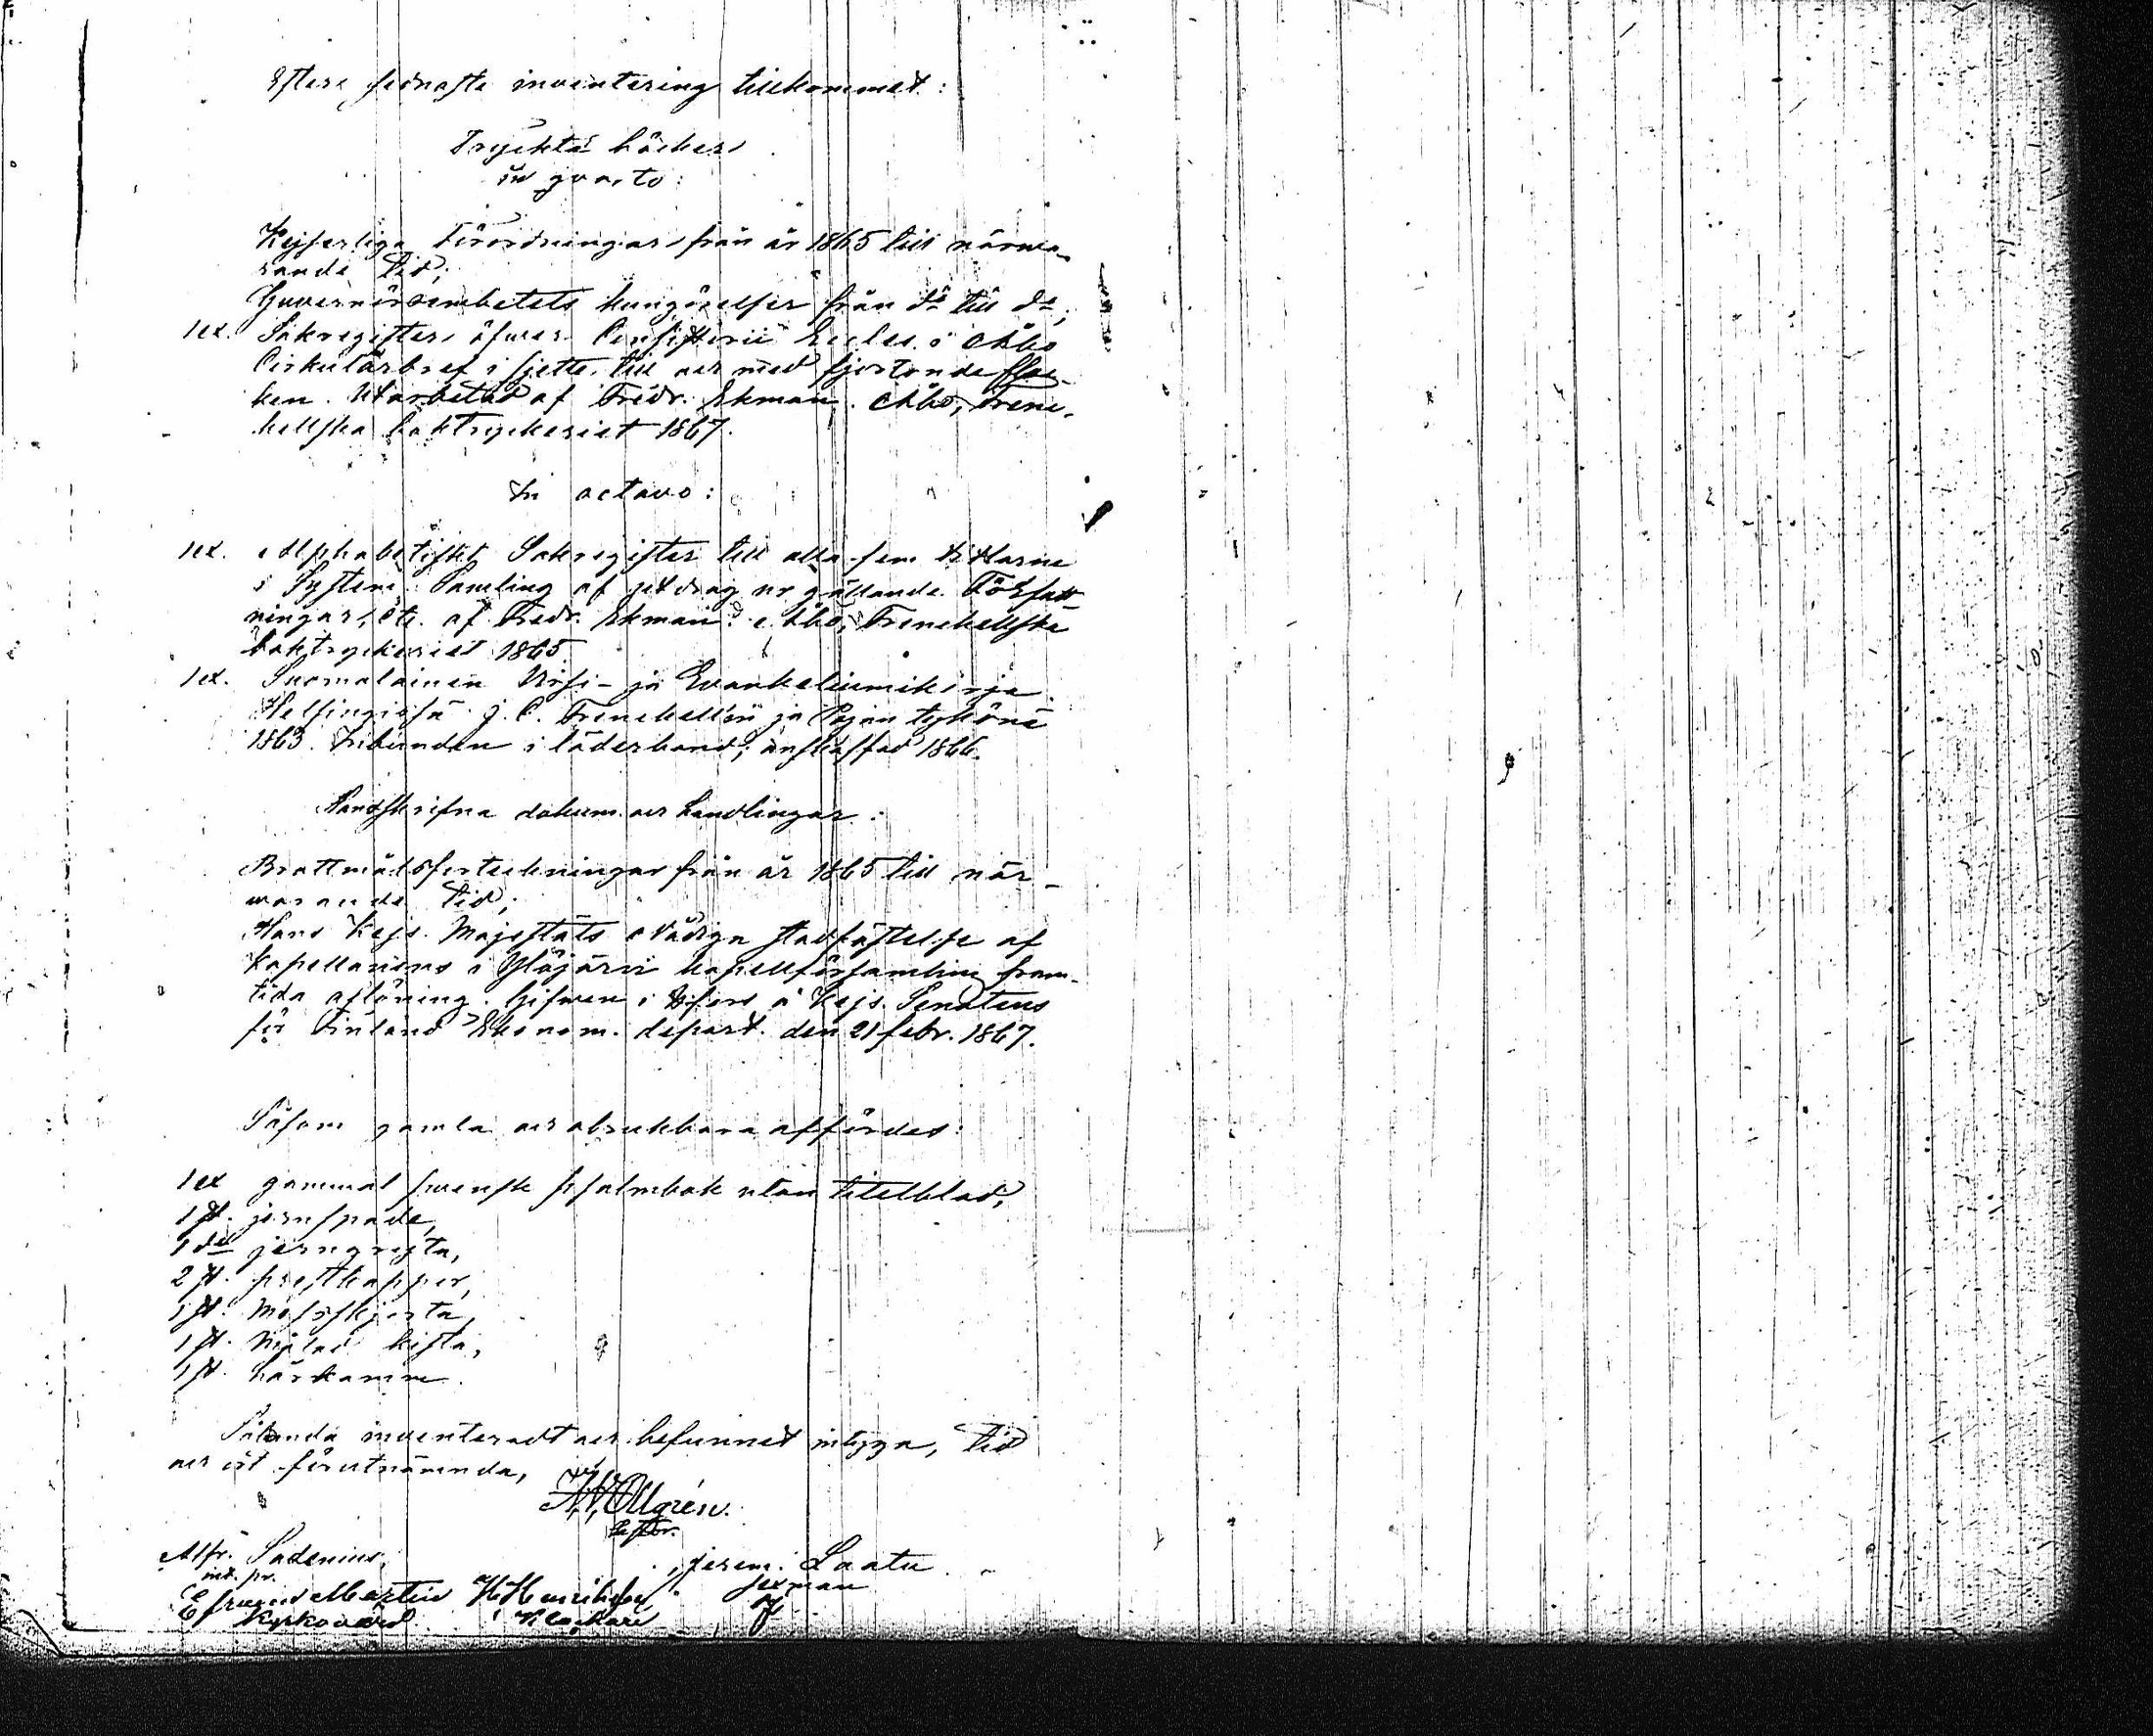 Efter sednaste inventering tillkommet:
Tryckta böcker
in quarto:
Kejserliga Förordningar från år 1865 till närwa-
rande tid;
Guvernörsembetets kungörelser från d:o till d:o;
1 ex. Sakregister öfwer Consistorii Eccles. i Åbo
Cirkulärbref i sjette till och med fjortonde floc-
ken. Utarbetad af Fredr. Ekman. Åbo, Frenc-
kellska boktryckeriet 1867.
In octavo:
1 ex. Alphabetiskt Sakregister till alla fem titlarne
i System. Samling af utdrag ur gällande Författ-
ningar, etc. af Fredr. Ekman. Åbo, Frenckellska
boktryckeriet 1865.
1 ex. Suomalainen Wirsi- ja Evankeliumikirja
Helsingissä J. C. Frenckell'in ja Pojan tykönä
1863. Inbunden i läderband; anskaffad 1866.
Handskrifna dokum. och handlingar:
Brottmålsförteckningar från år 1865 till när-
warande tid;
Hans Kejs. Majestäts Nådiga stadfästelse af
kapellanens i Ylöjärvi kapellförsamling fram-
tida aflöning. Gifwen i H:fors å Kejs. Senatens
för Finland Ekonom. depart. den 21 febr. 1867.
Såsom gamla och obrukbara affördes:
1 ex gammal swensk psalmbok utan titelblad,
1 st. jernspade,
1 d:o jerngryta,
2 st. prestkappor,
1 st. Messskjorta,
1 st. Målad kista,
1 st. hårkamm.
Sålunda inventeradt och befunnet intyga, tid
och ort förutnämnda,
Ollgrén.
Pastor.
Alfr. Sadenius,
Jerem. Laatu
Martin H. Henriksson
sexman
Kyrkovärd Klockare